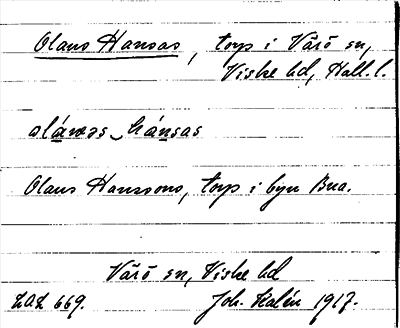 Olaus Hansas, torp i Värö sn,
Viske hd, Hall. l.
oláuəs hánsas
Olaus Hanssons, torp i byn Bua.
Värö sn, Viske hd
LAL 669. Joh. Kalén 1917.